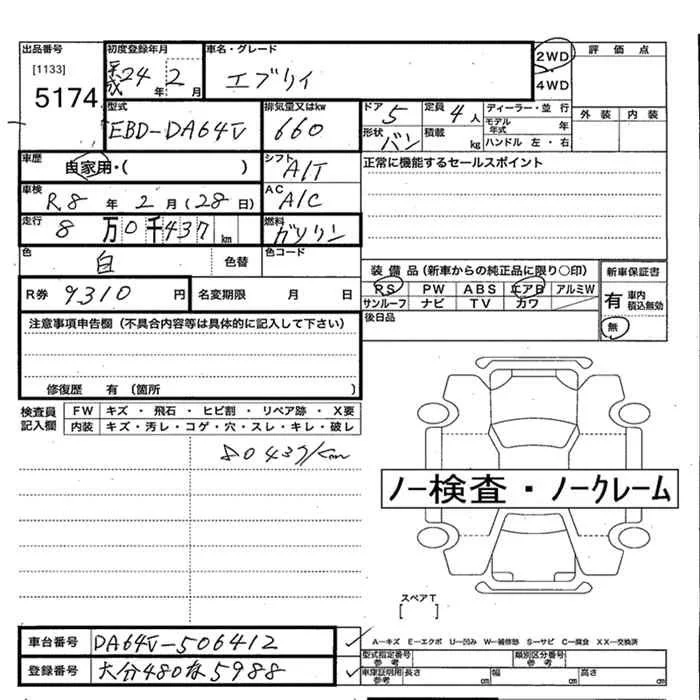 出品番号 [1133] 5174
初度登録年月 平成24年2月
車名・グレード エブリイ
2WD
4WD
評価点
外装 内装
型式 EBD-DA64V
排気量又はkw 660
ドア 5
定員 4人
形状 バン
積載 kg
ディーラー・並行
モデル年式 年
ハンドル 左・右
車歴 自家用・( )
シフト A/T
正常に機能するセールスポイント
車検 R.8年2月(28日)
AC A/C
走行 8万0千437km
燃料 ガソリン
色 白 色替
色コード
装備品(新車からの純正品に限り○印)
RS PW ABS エアB アルミW
サンルーフ ナビ TV カワ
後日品
新車保証書
有 車内積込無効
無
R券 9310円
名変期限 月 日
注意事項申告欄(不具合内容等は具体的に記入して下さい)
修復歴 有(箇所 )
検査員記入欄
FW キズ・飛石・ヒビ割・リペア跡・X要
内装 キズ・汚レ・コゲ・穴・スレ・キレ・破レ
80437km
ノー検査・ノークレーム
スペアT
[ ]
車台番号 DA64V-506412
登録番号 大分480な5988
A-キズ E-エクボ U-凹み W-補修跡 S-サビ C-腐食 XX-交換済
型式指定番号 参考
類別区分番号 参考
車庫証明用 参考 長さ cm 幅 cm 高さ cm